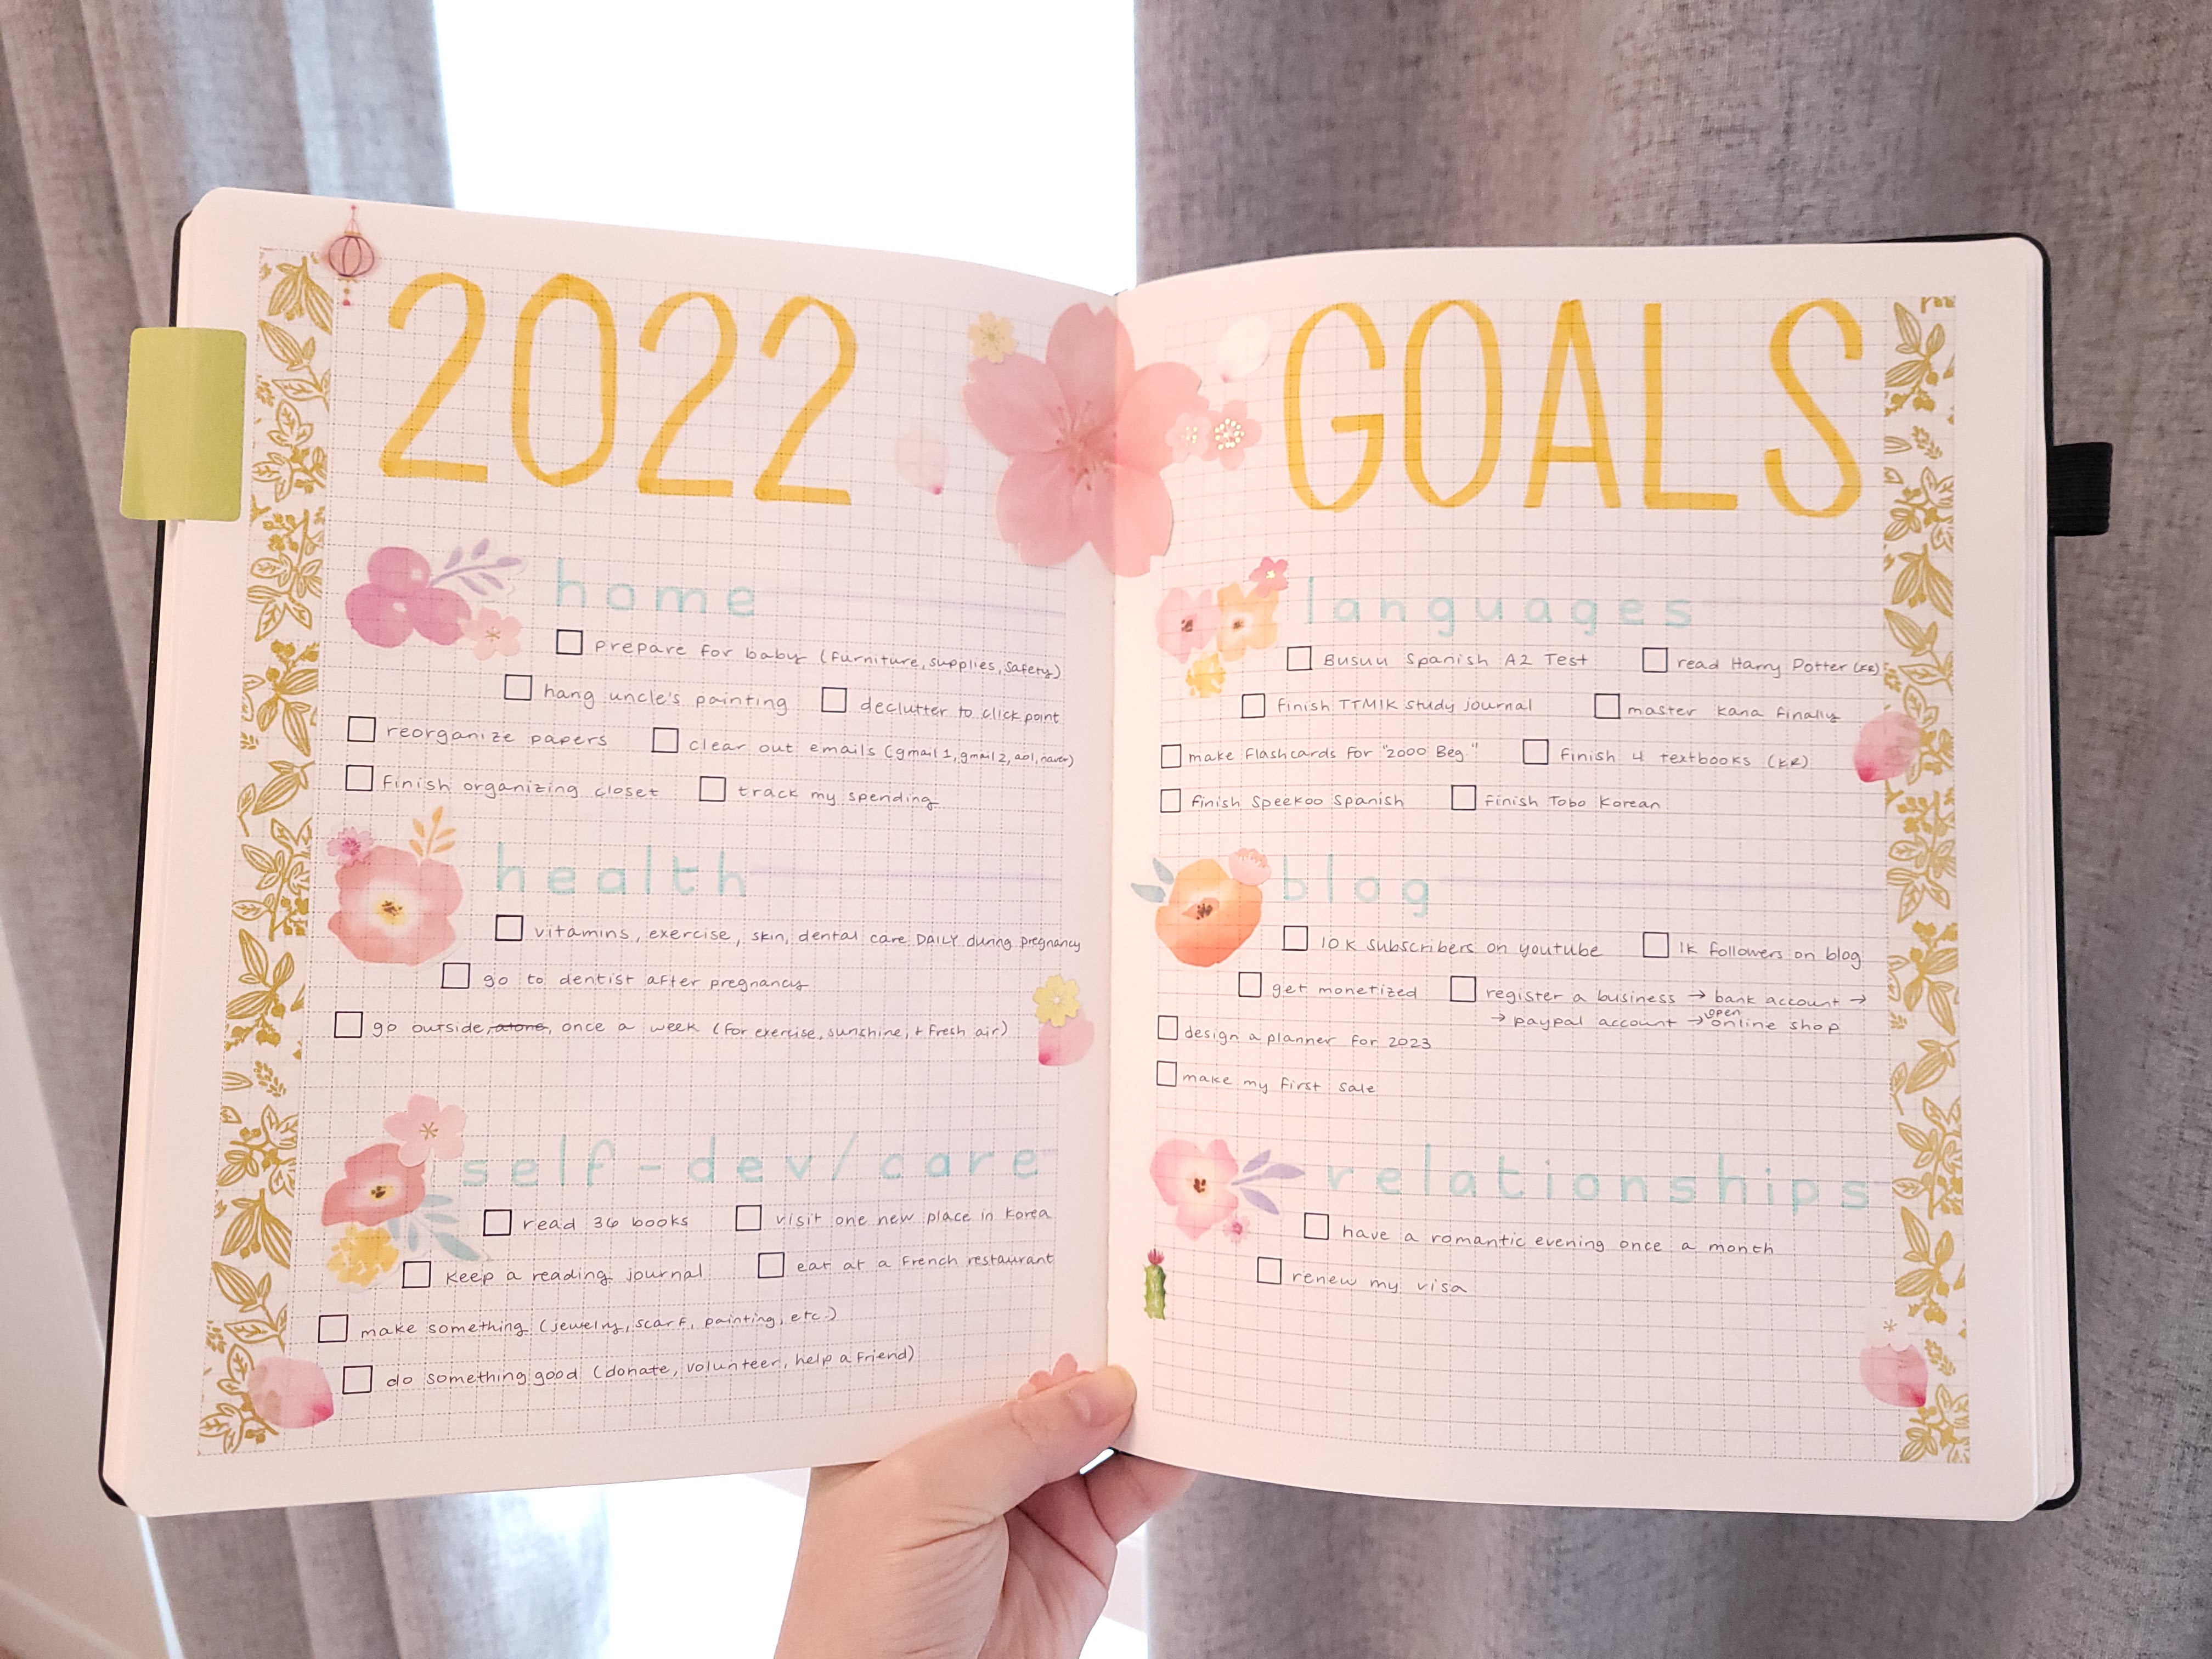 2022
home
prepare for baby (furniture, supplies, safety)
hang uncle's painting
declutter to click point
reorganize papers
clear out emails (gmail 1, gmail 2, aol, naver)
finish organizing closet
track my spending
health
vitamins, exercise, skin, dental care DAILY during pregnancy
go to dentist after pregnancy
go outside, alone, once a week (for exercise, sunshine, + fresh air)
self-dev/care
read 36 books
visit one new place in Korea
keep a reading journal
eat at a French restaurant
make something (jewelry, scarf, painting, etc.)
do something good (donate, volunteer, help a friend)
GOALS
languages
Busuu Spanish A2 Test
read Harry Potter (KR)
finish TTMIK study journal
master kana finally
make flashcards for "2000 Beg."
finish 4 textbooks (KR)
finish Speekoo Spanish
finish Tobo Korean
blog
10K subscribers on youtube
1K followers on blog
get monetized
register a business → bank account →
→ paypal account → open online shop
design a planner for 2023
make my first sale
relationships
have a romantic evening once a month
renew my visa